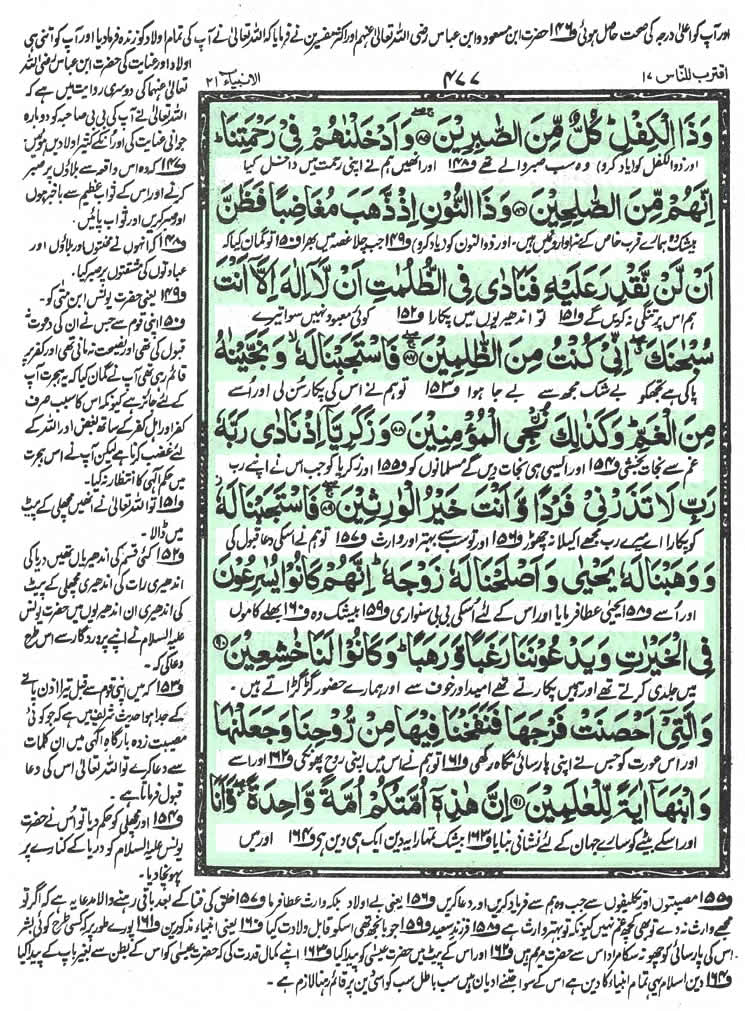 اور آپ کو اعلیٰ درجہ کی صحت حاصل ہوئی و۱۴۶ حضرت ابن مسعود و ابن عباس رضی اللہ تعالیٰ عنہم اور اکثر مفسرین نے فرمایا کہ اللہ تعالیٰ نے آپ کی تمام اولاد کو زندہ فرما دیا اور آپ کو اتنی ہی
اولاد اور عنایت کی حضرت ابن عباس رضی اللہ
تعالیٰ عنہما کی دوسری روایت میں ہے کہ
اللہ تعالیٰ نے آپ کی بی بی صاحبہ کو دوبارہ
جوانی عنایت کی اور انکے کثیر اولادیں ہوئیں۔
و۱۴۷ کہ وہ اس واقعہ سے بلاؤں پر صبر
کرنے اور اس کے ثواب عظیم سے باخبر ہوں
اور صبر کریں اور ثواب پائیں۔
و۱۴۸ کہ انہوں نے محنتوں اور بلاؤں اور
عبادتوں کی مشقتوں پر صبر کیا۔
و۱۴۹ یعنی حضرت یونس ابن متی کو۔
و۱۵۰ اپنی قوم سے جس نے ان کی دعوت نہ
قبول کی تھی اور نصیحت نہ مانی تھی اور کفر پر
قائم رہی تھی آپ نے گمان کیا کہ یہ ہجرت آپ
کے لئے جائز ہے کیونکہ اس کا سبب صرف
کفر اور اہل کفر کے ساتھ بغض اور اللہ کے
لئے غضب کرنا ہے لیکن آپ نے اس ہجرت
میں حکم الٰہی کا انتظار نہ کیا۔
و۱۵۱ تو اللہ تعالیٰ نے انھیں مچھلی کے پیٹ
میں ڈالا۔
و۱۵۲ کئی قسم کی اندھیریاں تھیں دریا کی
اندھیری رات کی اندھیری مچھلی کے پیٹ
کی اندھیری ان اندھیریوں میں حضرت یونس
علیہ السلام نے اپنے پروردگار سے اس طرح
دعا کی کہ۔
و۱۵۳ کہ میں اپنی قوم سے قبل تیرا اذن پانے
کے جدا ہوا حدیث شریف میں ہے کہ جو کوئی
مصیبت زدہ بارگاہ الٰہی میں ان کلمات
سے دعا کرے تو اللہ تعالیٰ اس کی دعا
قبول فرماتا ہے۔
و۱۵۴ اور مچھلی کو حکم دیا تو اس نے حضرت
یونس علیہ السلام کو دریا کے کنارے پر
پہونچا دیا۔
اقترب للناس ۱۷
۴۷۷
الانبیاء ۲۱
وَذَا الْكِفْلِ كُلٌّ مِّنَ الصّٰبِرِيْنَ ﴿۸۵﴾ وَاَدْخَلْنٰهُمْ فِيْ رَحْمَتِنَا
اور ذوالکفل کو (یاد کرو) وہ سب صبر والے تھے و۱۴۸ اور انھیں ہم نے اپنی رحمت میں داخل کیا
اِنَّهُمْ مِّنَ الصّٰلِحِيْنَ ﴿۸۶﴾ وَذَا النُّوْنِ اِذْ ذَّهَبَ مُغَاضِبًا فَظَنَّ
بیشک وہ ہمارے قرب خاص کے سزاواروں میں ہیں۔ اور ذوالنون کو (یاد کرو) و۱۴۹ جب چلا غصہ میں بھرا و۱۵۰ تو گمان کیا کہ
اَنْ لَّنْ نَّقْدِرَ عَلَيْهِ فَنَادٰى فِي الظُّلُمٰتِ اَنْ لَّآ اِلٰهَ اِلَّآ اَنْتَ
ہم اس پر تنگی نہ کریں گے و۱۵۱ تو اندھیریوں میں پکارا و۱۵۲ کوئی معبود نہیں سوا تیرے
سُبْحٰنَكَ اِنِّيْ كُنْتُ مِنَ الظّٰلِمِيْنَ ﴿۸۷﴾ فَاسْتَجَبْنَا لَهٗ وَنَجَّيْنٰهُ
پاکی ہے تجھکو بے شک مجھ سے بے جا ہوا و۱۵۳ تو ہم نے اس کی پکار سن لی اور اُسے
مِنَ الْغَمِّ وَكَذٰلِكَ نُـْۨجِي الْمُؤْمِنِيْنَ ﴿۸۸﴾ وَزَكَرِيَّآ اِذْ نَادٰى رَبَّهٗ
غم سے نجات بخشی و۱۵۴ اور ایسی ہی نجات دیں گے مسلمانوں کو و۱۵۵ اور زکریا کو جب اس نے اپنے رب
رَبِّ لَا تَذَرْنِيْ فَرْدًا وَّاَنْتَ خَيْرُ الْوٰرِثِيْنَ ﴿۸۹﴾ فَاسْتَجَبْنَا لَهٗ
کو پکارا اے میرے رب مجھے اکیلا نہ چھوڑ و۱۵۶ اور تو سب سے بہتر اور وارث و۱۵۷ تو ہم نے اسکی دعا قبول کی
وَوَهَبْنَا لَهٗ يَحْيٰى وَاَصْلَحْنَا لَهٗ زَوْجَهٗ اِنَّهُمْ كَانُوْا يُسٰرِعُوْنَ
اور اُسے و۱۵۸ یحیٰی عطا فرمایا اور اس کے لئے اُسکی بی بی سنواری و۱۵۹ بیشک وہ و۱۶۰ بھلے کاموں
فِي الْخَيْرٰتِ وَيَدْعُوْنَنَا رَغَبًا وَّرَهَبًا وَكَانُوْا لَنَا خٰشِعِيْنَ ﴿۹۰﴾
میں جلدی کرتے تھے اور ہمیں پکارتے تھے امید اور خوف سے اور ہمارے حضور گڑگڑاتے ہیں۔
وَالَّتِيْٓ اَحْصَنَتْ فَرْجَهَا فَنَفَخْنَا فِيْهَا مِنْ رُّوْحِنَا وَجَعَلْنٰهَا
اور اس عورت کو جس نے اپنی پارسائی نگاہ رکھی و۱۶۱ تو ہم نے اس میں اپنی روح پھونکی و۱۶۲ اور اسے
وَابْنَهَآ اٰيَةً لِّلْعٰلَمِيْنَ ﴿۹۱﴾ اِنَّ هٰذِهٖٓ اُمَّتُكُمْ اُمَّةً وَّاحِدَةً وَّاَنَا
اور اسکے بیٹے کو سارے جہان کے لئے نشانی بنایا و۱۶۳ بیشک تمہارا یہ دین ایک ہی دین ہی و۱۶۴ اور میں
و۱۵۵ مصیبتوں اور تکلیفوں سے جب وہ ہم سے فریاد کریں اور دعا کریں و۱۵۶ یعنی بے اولاد بلکہ وارث عطا فرما و۱۵۷ خلق کی فنا کے بعد باقی رہنے والا مدعا یہ ہے کہ اگر تو
مجھے وارث نہ دے تو بھی کچھ غم نہیں کیونکہ تو بہتر وارث ہے و۱۵۸ فرزند سعید و۱۵۹ جو بانجھ تھی اسکو قابل ولادت کیا و۱۶۰ یعنی انبیاء مذکورین و۱۶۱ پورے طور پر کہ کسی طرح کوئی بشر
اس کی پارسائی کو چھو نہ سکا مراد اس سے حضرت مریم ہیں و۱۶۲ اور اس کے پیٹ میں حضرت عیسیٰ کو پیدا کیا و۱۶۳ اپنے کمال قدرت کی کہ حضرت عیسیٰ کو اس کے بطن سے بغیر باپ کے پیدا کیا
و۱۶۴ دین اسلام یہی تمام انبیاء کا دین ہے اس کے سوا جتنے ادیان ہیں سب باطل سب کو اسی دین پر قائم رہنا لازم ہے۔